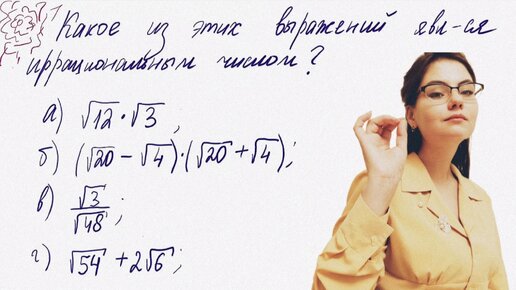 Какое из этих выражений явл-ся
иррациональным числом?
а) √12 · √3 ;
б) (√20 − √4) · (√20 + √4);
в) √3/√48 ;
г) √54 + 2√6 ;